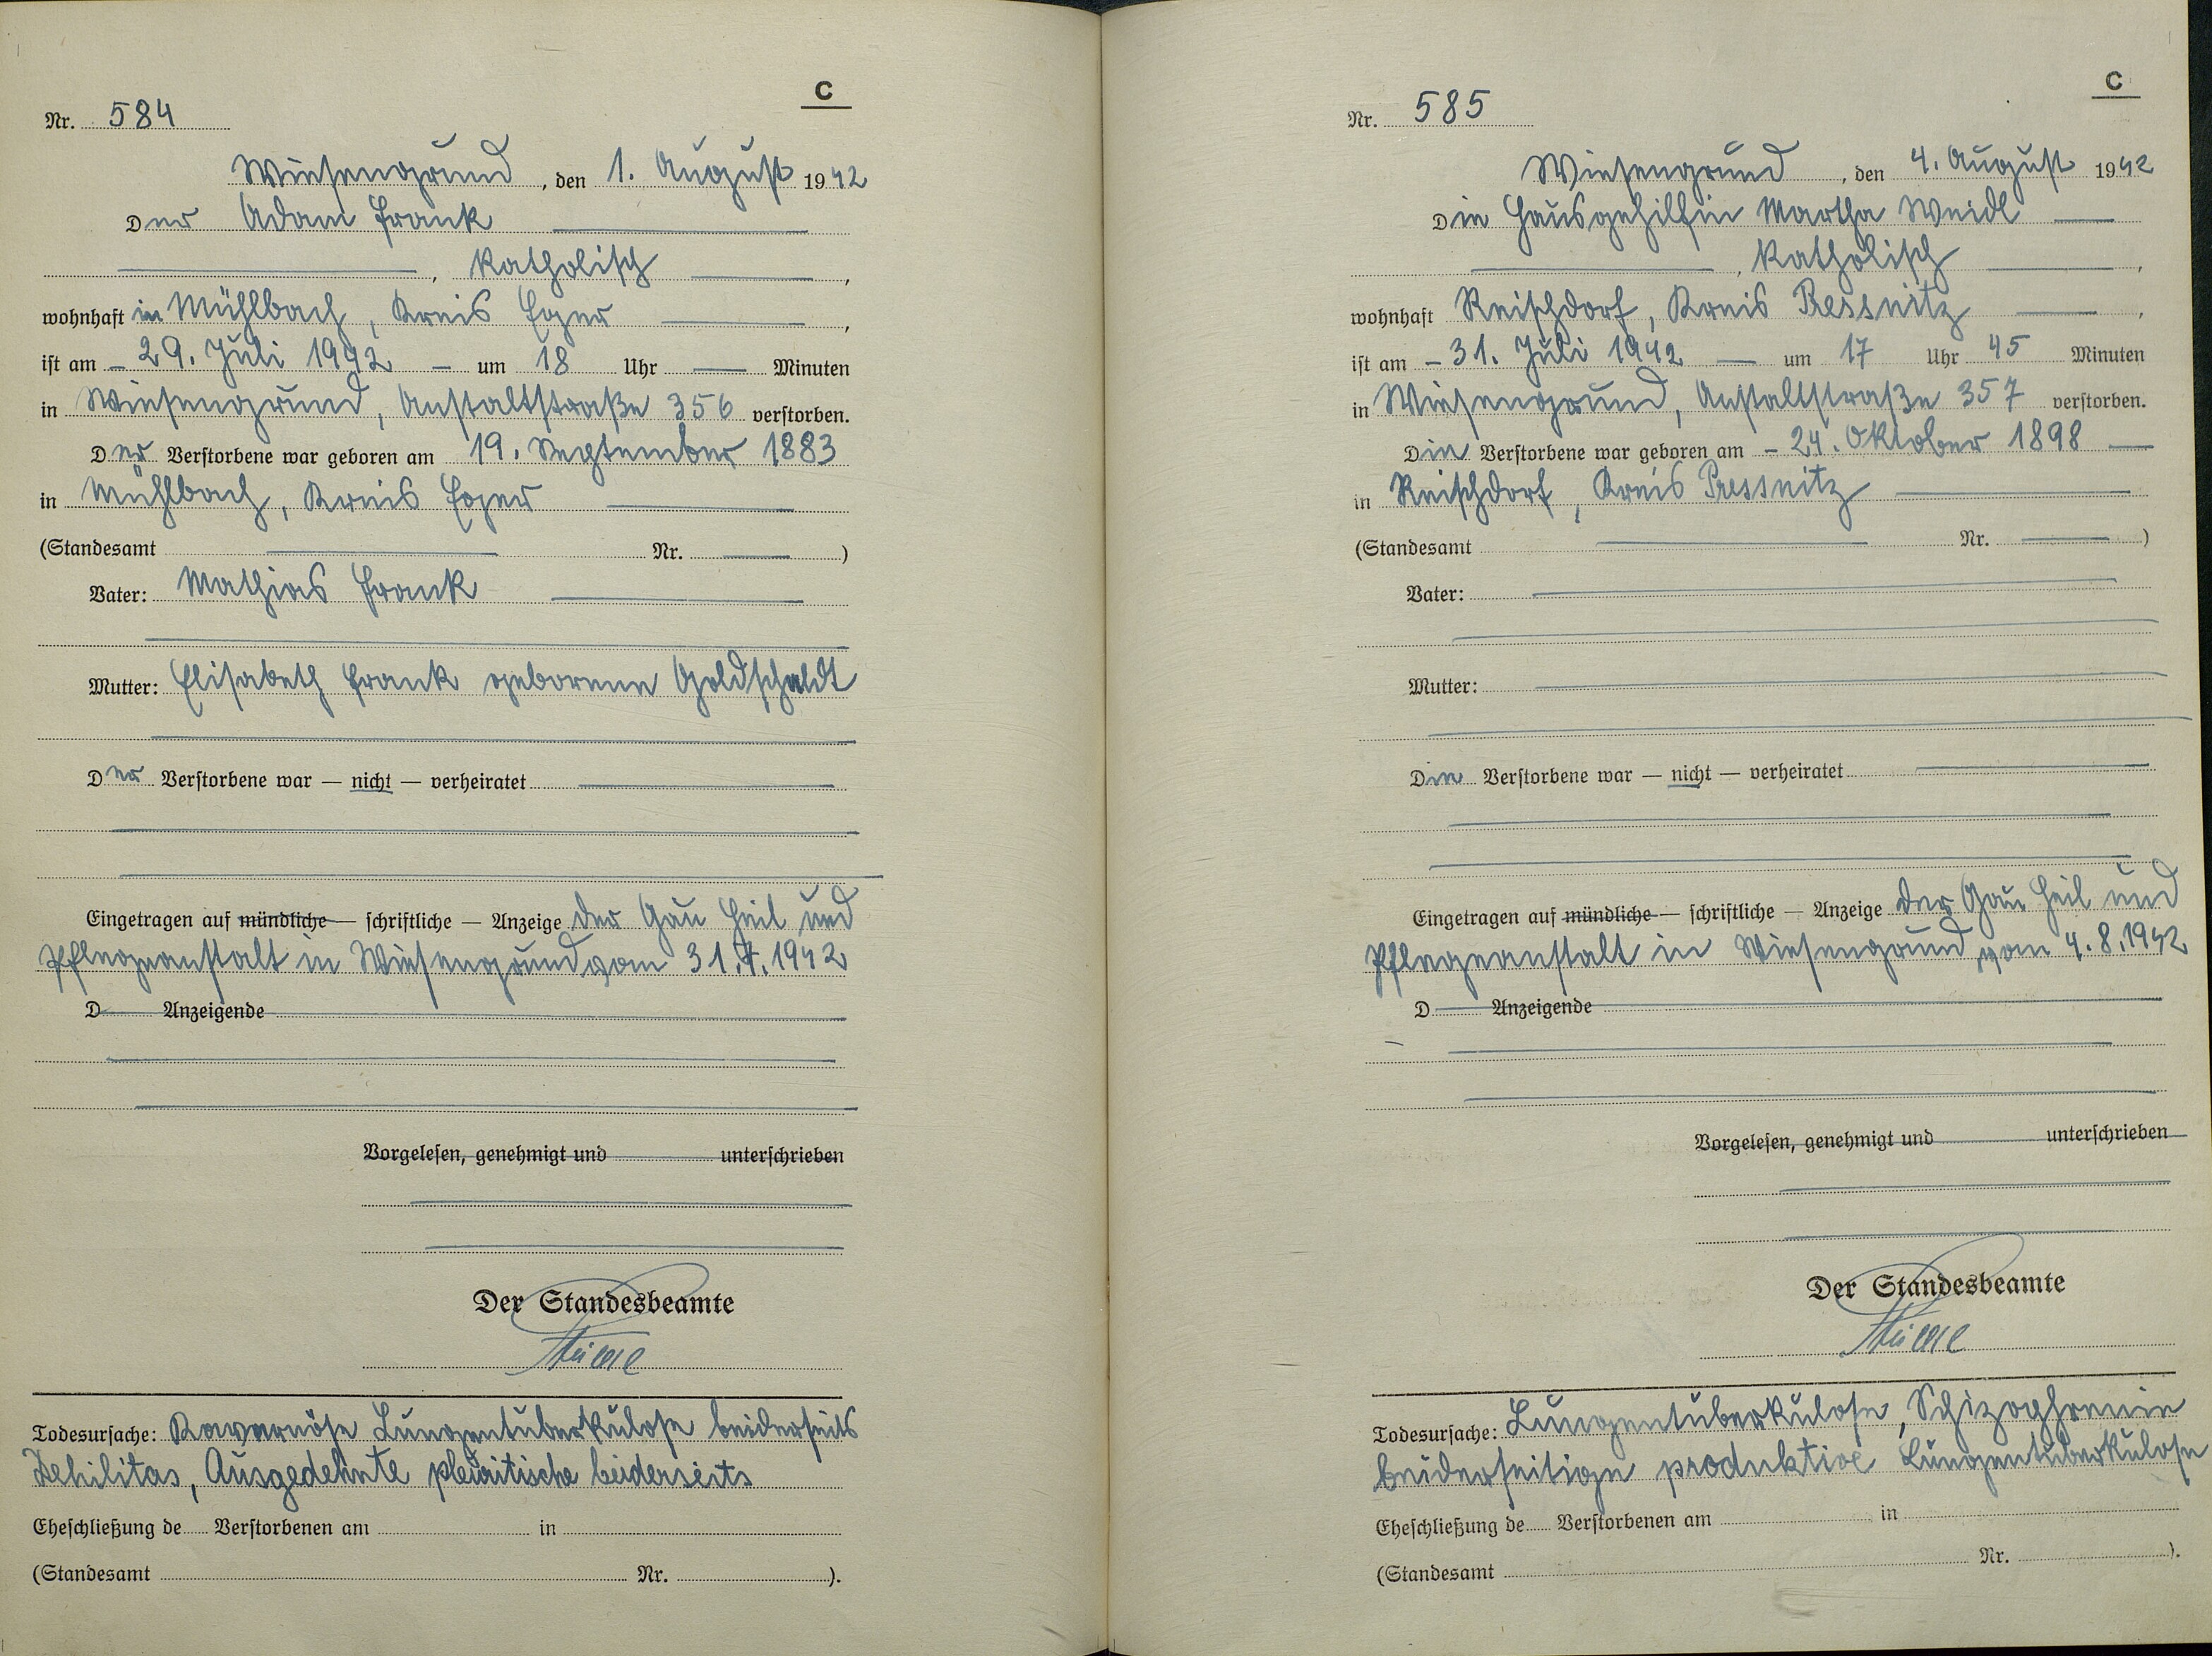 C
Nr. 584
Wiesengrund, den 1. August 1942
Der Adam Frank
, katholisch ,
wohnhaft in Mühlbach, Kreis Eger ,
ist am 29. Juli 1942 um 18 Uhr Minuten
in Wiesengrund, Anstaltstraße 356 verstorben.
Der Verstorbene war geboren am 19. September 1883
in Mühlbach, Kreis Eger
(Standesamt Nr. )
Vater: Mathias Frank
Mutter: Elisabeth Frank geborene Goldschaldt
Der Verstorbene war — nicht — verheiratet
Eingetragen auf mündliche — schriftliche — Anzeige der Gau Heil und
Pflegeanstalt in Wiesengrund vom 31.7.1942
D Anzeigende
Vorgelesen, genehmigt und unterschrieben
Der Standesbeamte
Todesursache: Kavernöse Lungentuberkulose beiderseits
Debilitas, Ausgedehnte pleuritische beiderseits
Eheschließung de Verstorbenen am in
(Standesamt Nr. ).
C
Nr. 585
Wiesengrund, den 4. August 1942
Die Hausgehilfin Martha Weidl
, katholisch ,
wohnhaft Reischdorf, Kreis Pressnitz ,
ist am 31. Juli 1942 um 17 Uhr 45 Minuten
in Wiesengrund, Anstaltstraße 357 verstorben.
Die Verstorbene war geboren am 24. Oktober 1898
in Reischdorf, Kreis Pressnitz
(Standesamt Nr. )
Vater:
Mutter:
Die Verstorbene war — nicht — verheiratet
Eingetragen auf mündliche — schriftliche — Anzeige der Gau Heil und
Pflegeanstalt in Wiesengrund vom 4.8.1942
D Anzeigende
Vorgelesen, genehmigt und unterschrieben
Der Standesbeamte
Todesursache: Lungentuberkulose, Schizophrenie
beiderseitige produktive Lungentuberkulose
Eheschließung de Verstorbenen am in
(Standesamt Nr. ).